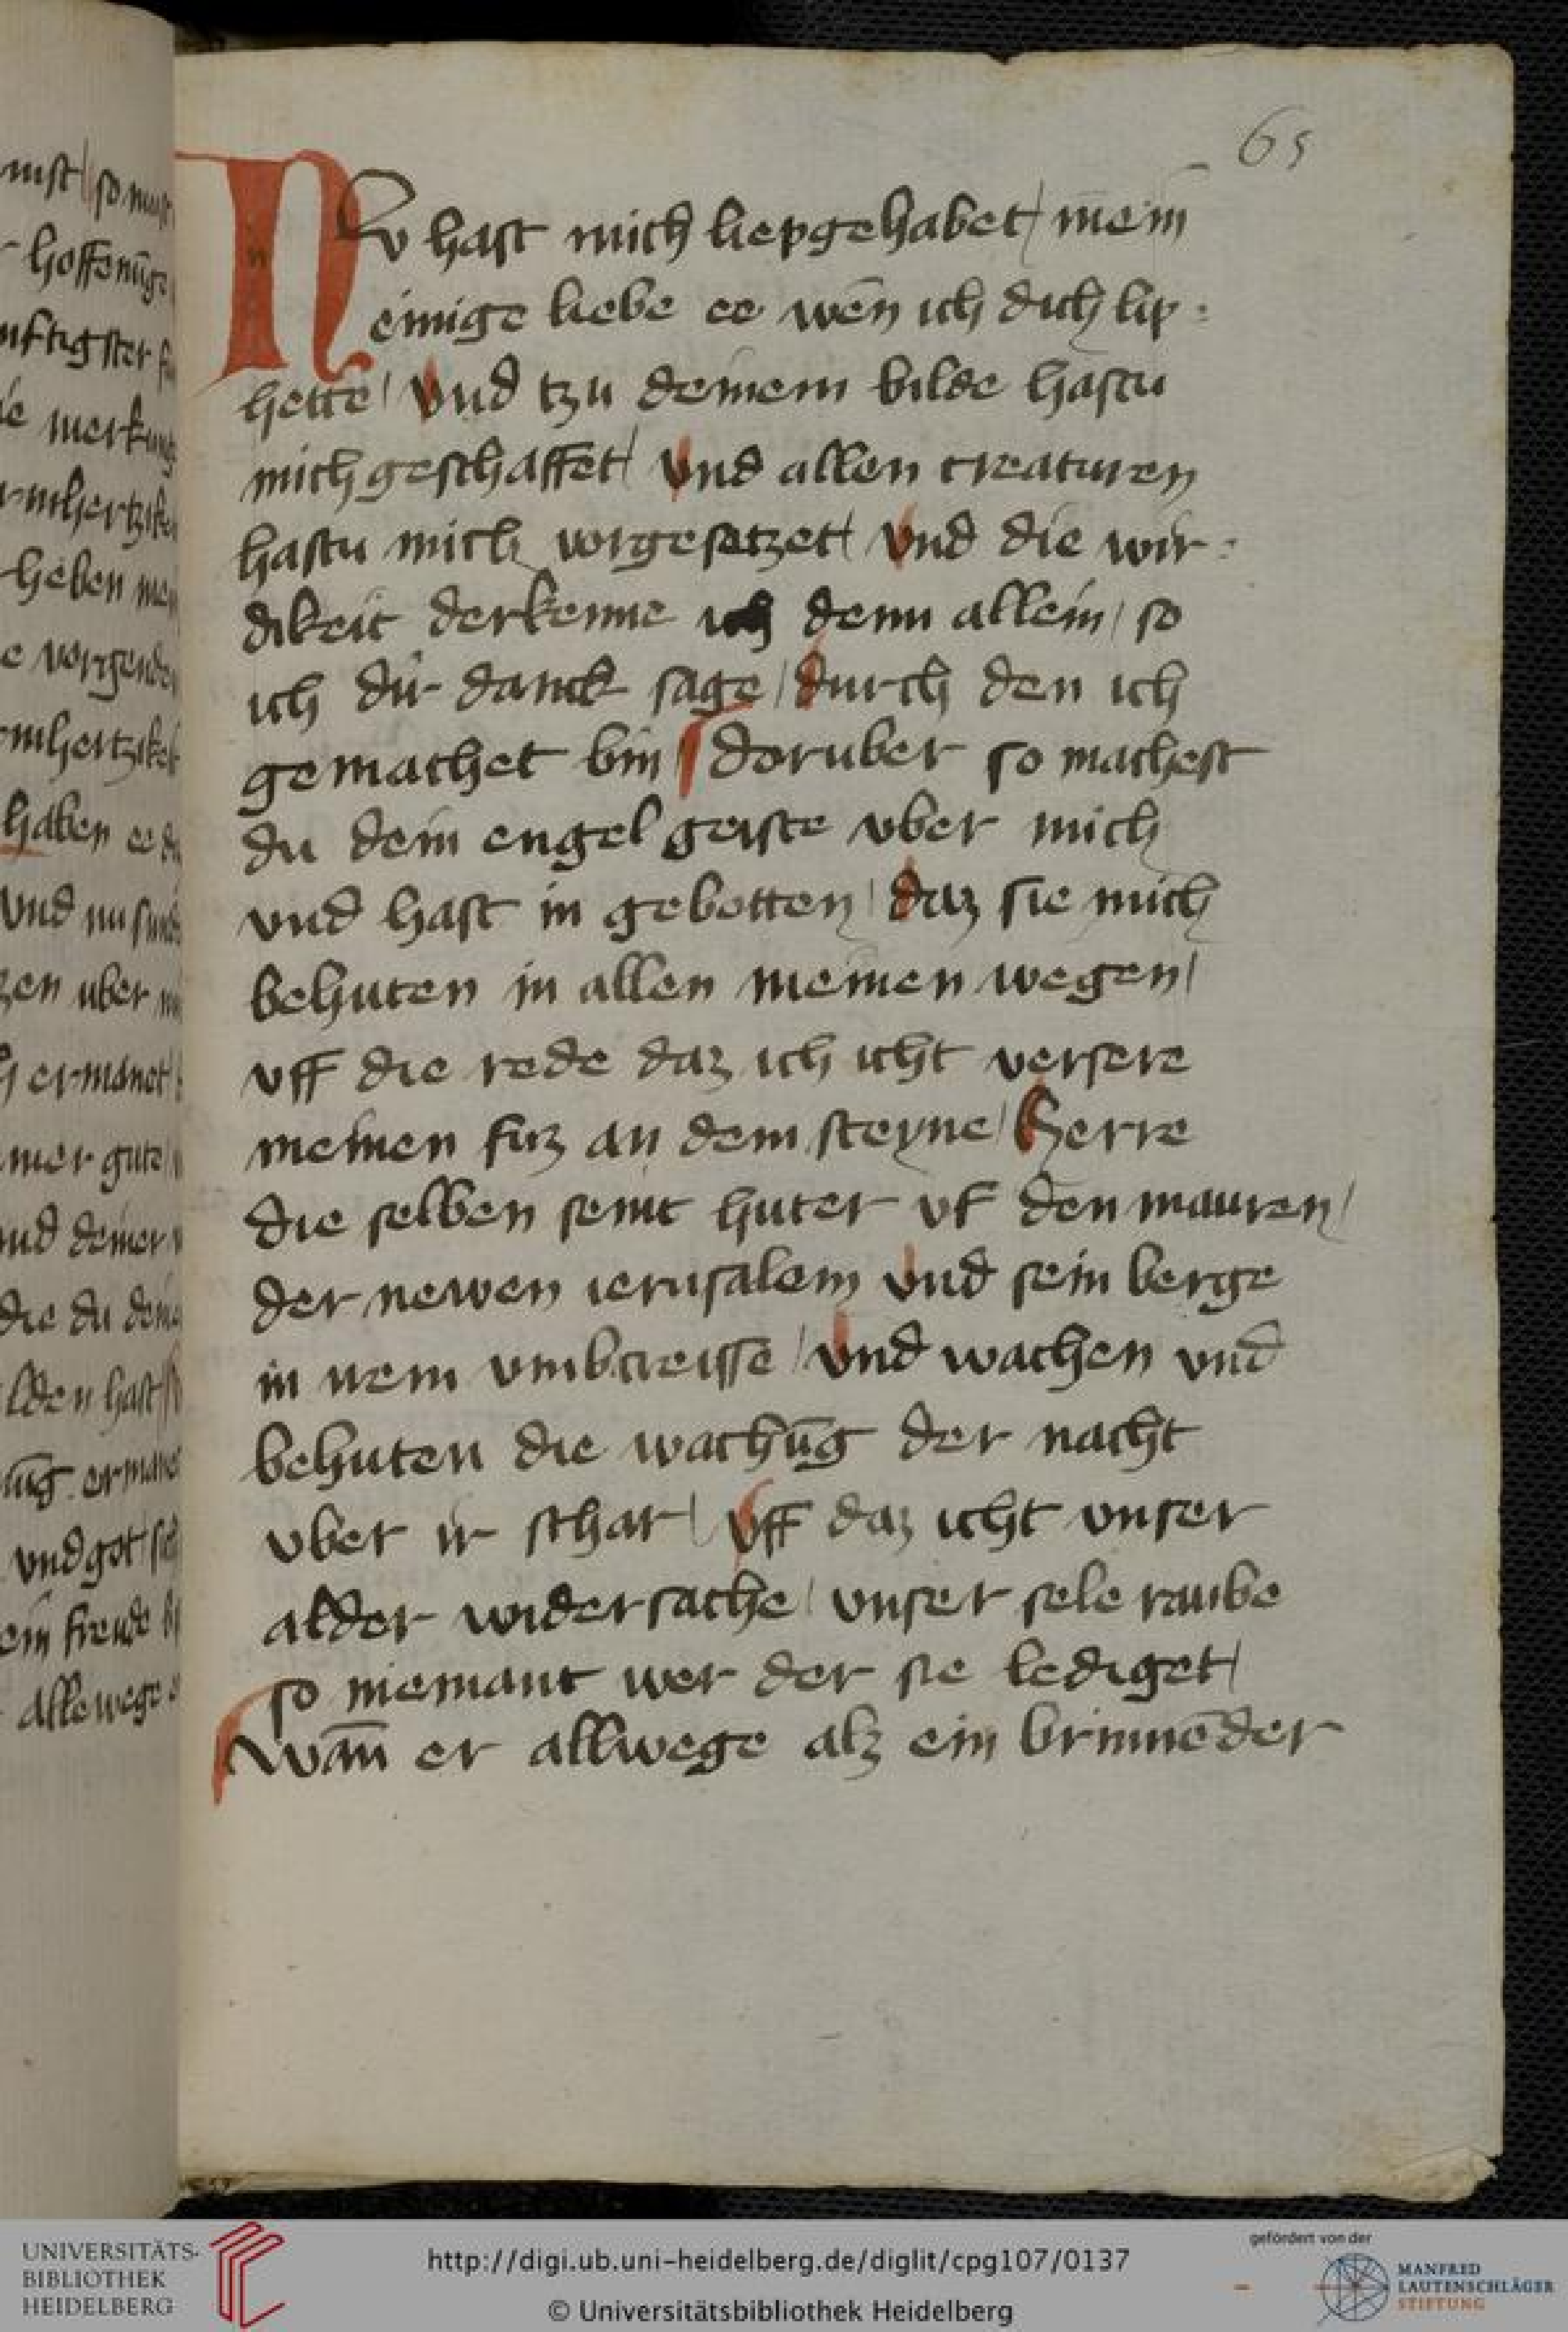 65
Nv hast mich liepgehabet / mein
einige liebe ee wēn ich dich lip :
hette / vnd tzu deinem bilde hastu
mich geschaffet / vnd allen creaturen
hastu mich vorgesatzet / vnd die wir :
dikeit derkenne ich denn allein / so
ich dir danck sage / durch den ich
gemachet bin / doruber so machest
du dein engel geiste vber mich
vnd hast in gebotten / daz sie mich
behuten in allen meinen wegen /
vff die rede daz ich icht versere
meinen fuz an dem steyne / Herre
die selben seint huter vf den mauren /
der newen ierusalem vnd sein berge
in irem vmbcreisse / vnd wachen vnd
behuten die wachūg der nacht
vber ir schar / vff daz icht vnser
alder widersache / vnser sele raube
so niemant wer der sie lediget /
wān er allwege alz ein brinnēder
UNIVERSITÄTS-
BIBLIOTHEK
HEIDELBERG
http://digi.ub.uni-heidelberg.de/diglit/cpg107/0137
© Universitätsbibliothek Heidelberg
gefördert von der
MANFRED
LAUTENSCHLÄGER
STIFTUNG